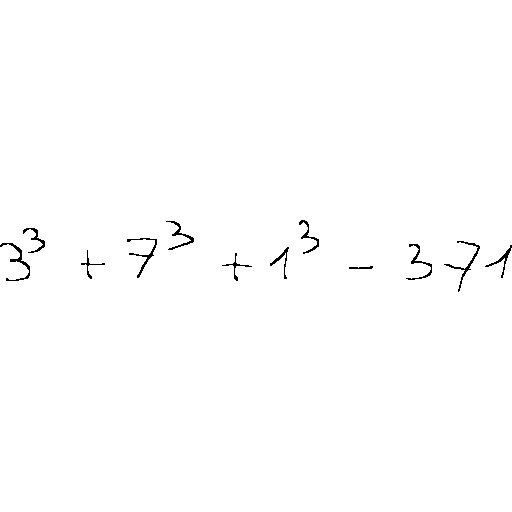 3³ + 7³ + 1³ - 371